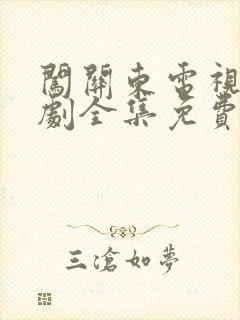 闖關東電視
劇全集免費
三滄如夢